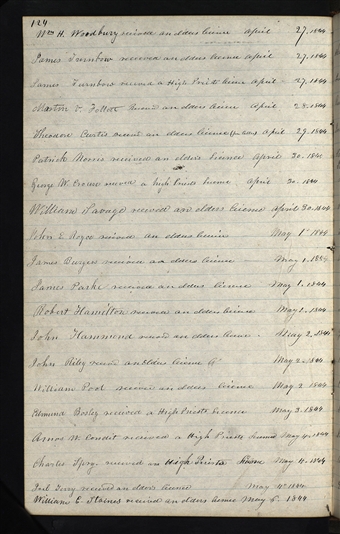 124
Wm H. Woodbury received an elders licence April 27. 1844
James Turnbow received an elders licence April 27. 1844
James Turnbow received a High Priests licence April 27. 1844
Martin received an elders licence April 28. 1844
Theodore Curtis receivd an elders licence April 29. 1844
Patrick Norris received an elders licence April 30. 1844
George W. received a high priests licence April 30. 1844
William Savage received an elders licence April 30. 1844
John E. Royce received an elders licence May 1st 1844
James Burgess received an elders licence May 1. 1844
James Parke received an elders licence May 1. 1844
Robert Hamilton received an elders licence May 1. 1844
John Hammond received an elders licence May 2. 1844
John Riley receivd an Elders licence May 2. 1844
William Pool received an elders licence May 2 1844
Edmund Bosley received a High Priests licence May 3. 1844
Amos W. Condit received a High Priests licence May 4. 1844
Charles received an High Priests licence May 4. 1844
Joel Terry received an elders licence May 4th 1844
William C. Staines received an elders licence May 6. 1844